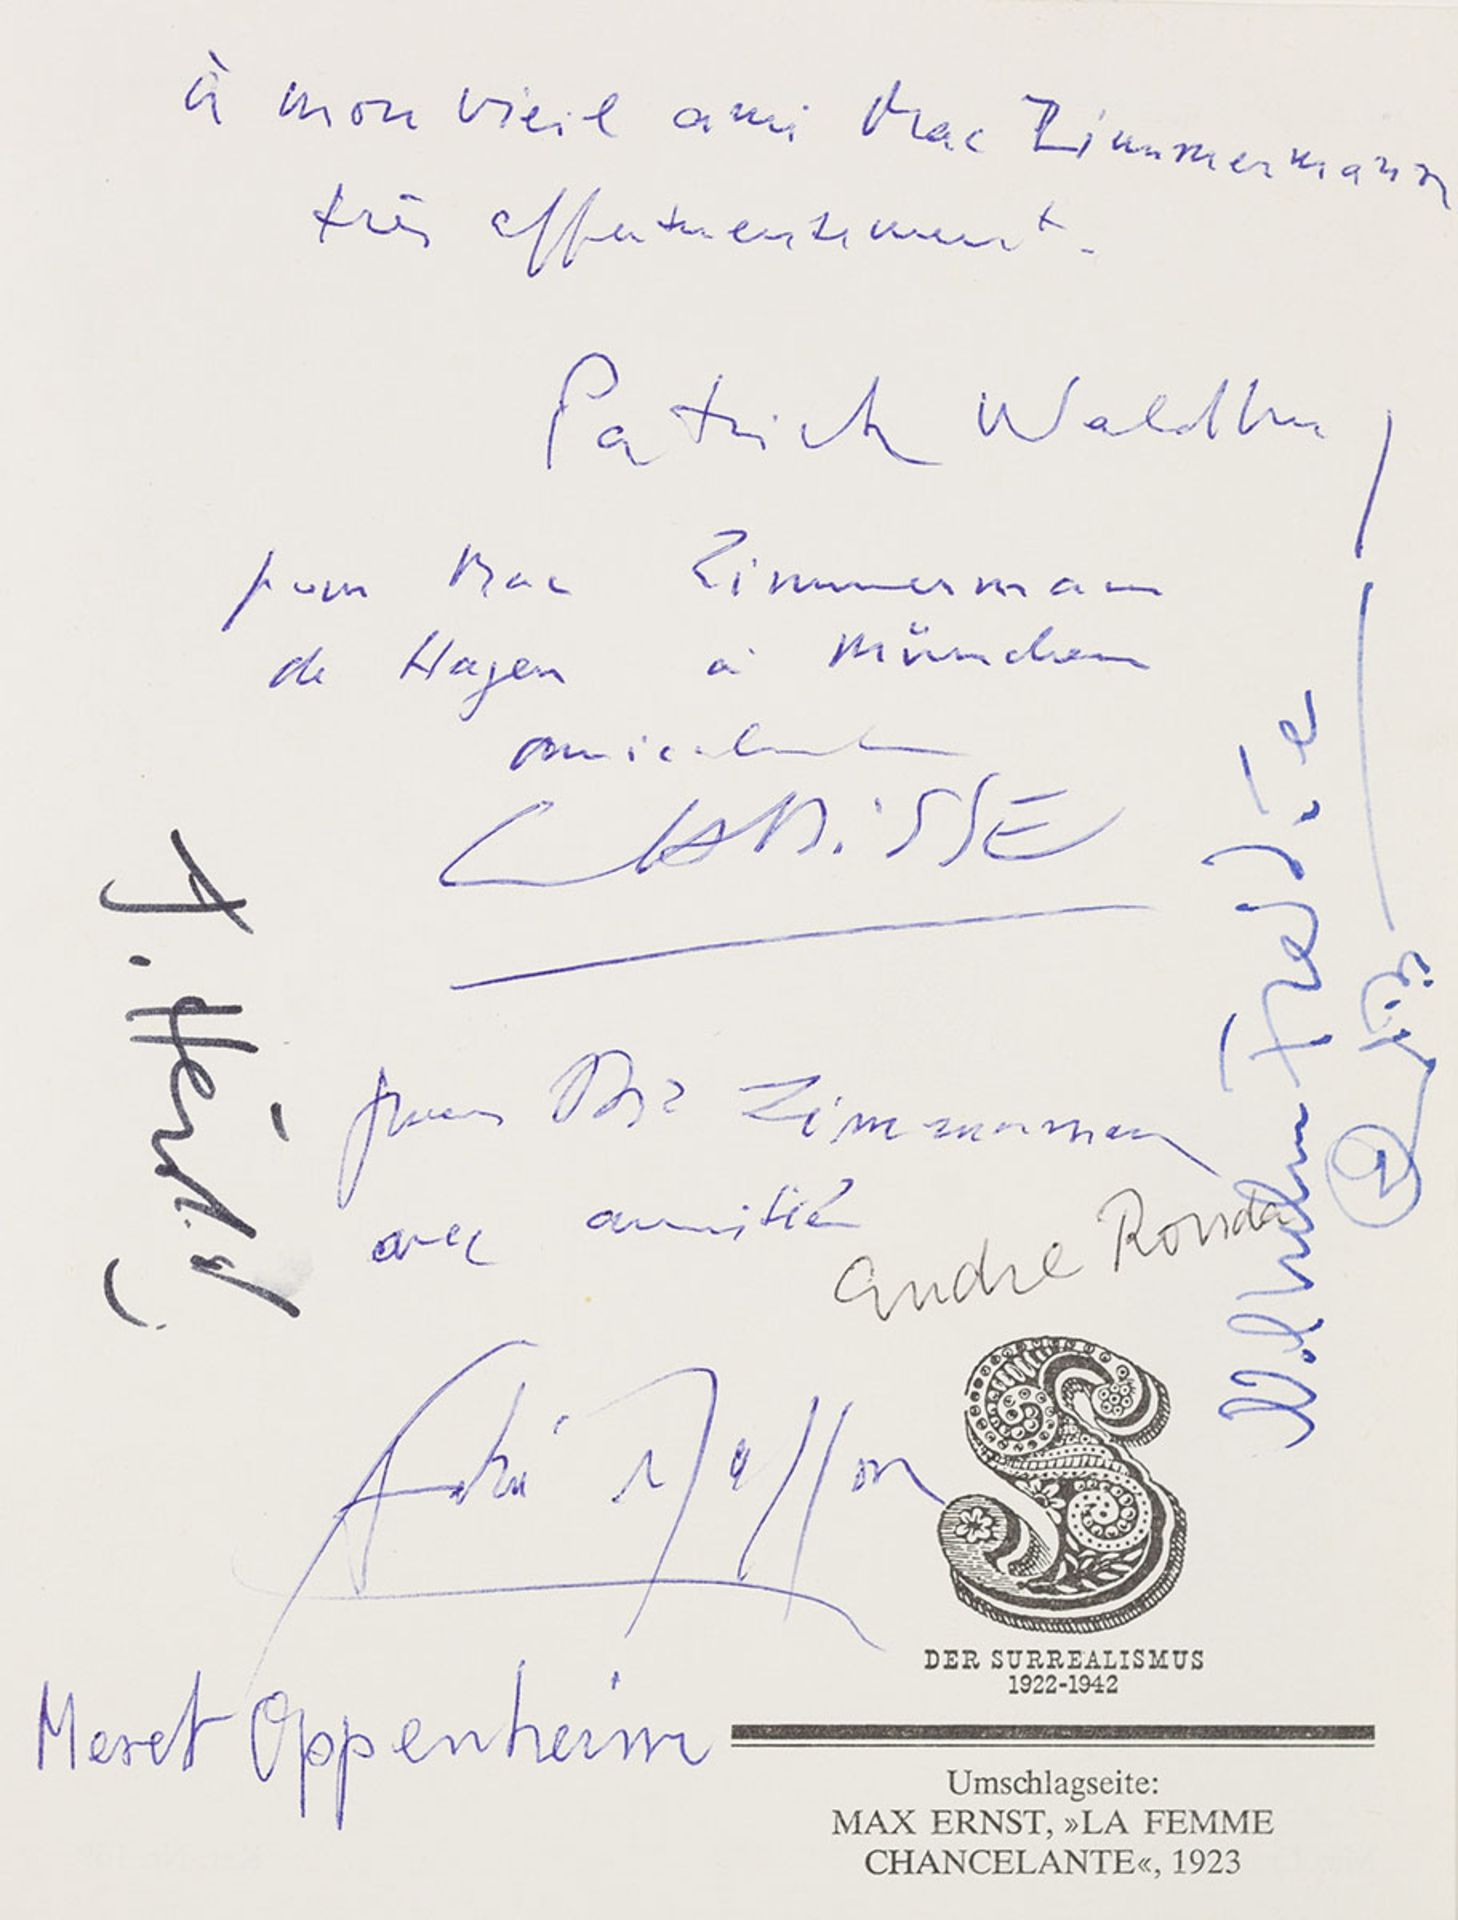 à mon vieil ami Mac Zimmermann
très affectueusement.
Patrick Waldberg
pour Mac Zimmermann
de Hagen à München
amicalement
LABISSE
J. Hérold
pour Mac Zimmermann
avec amitié
André Masson
Wilhelm Freddie
Meret Oppenheim
DER SURREALISMUS
1922-1942
Umschlagseite:
MAX ERNST, »LA FEMME
CHANCELANTE«, 1923